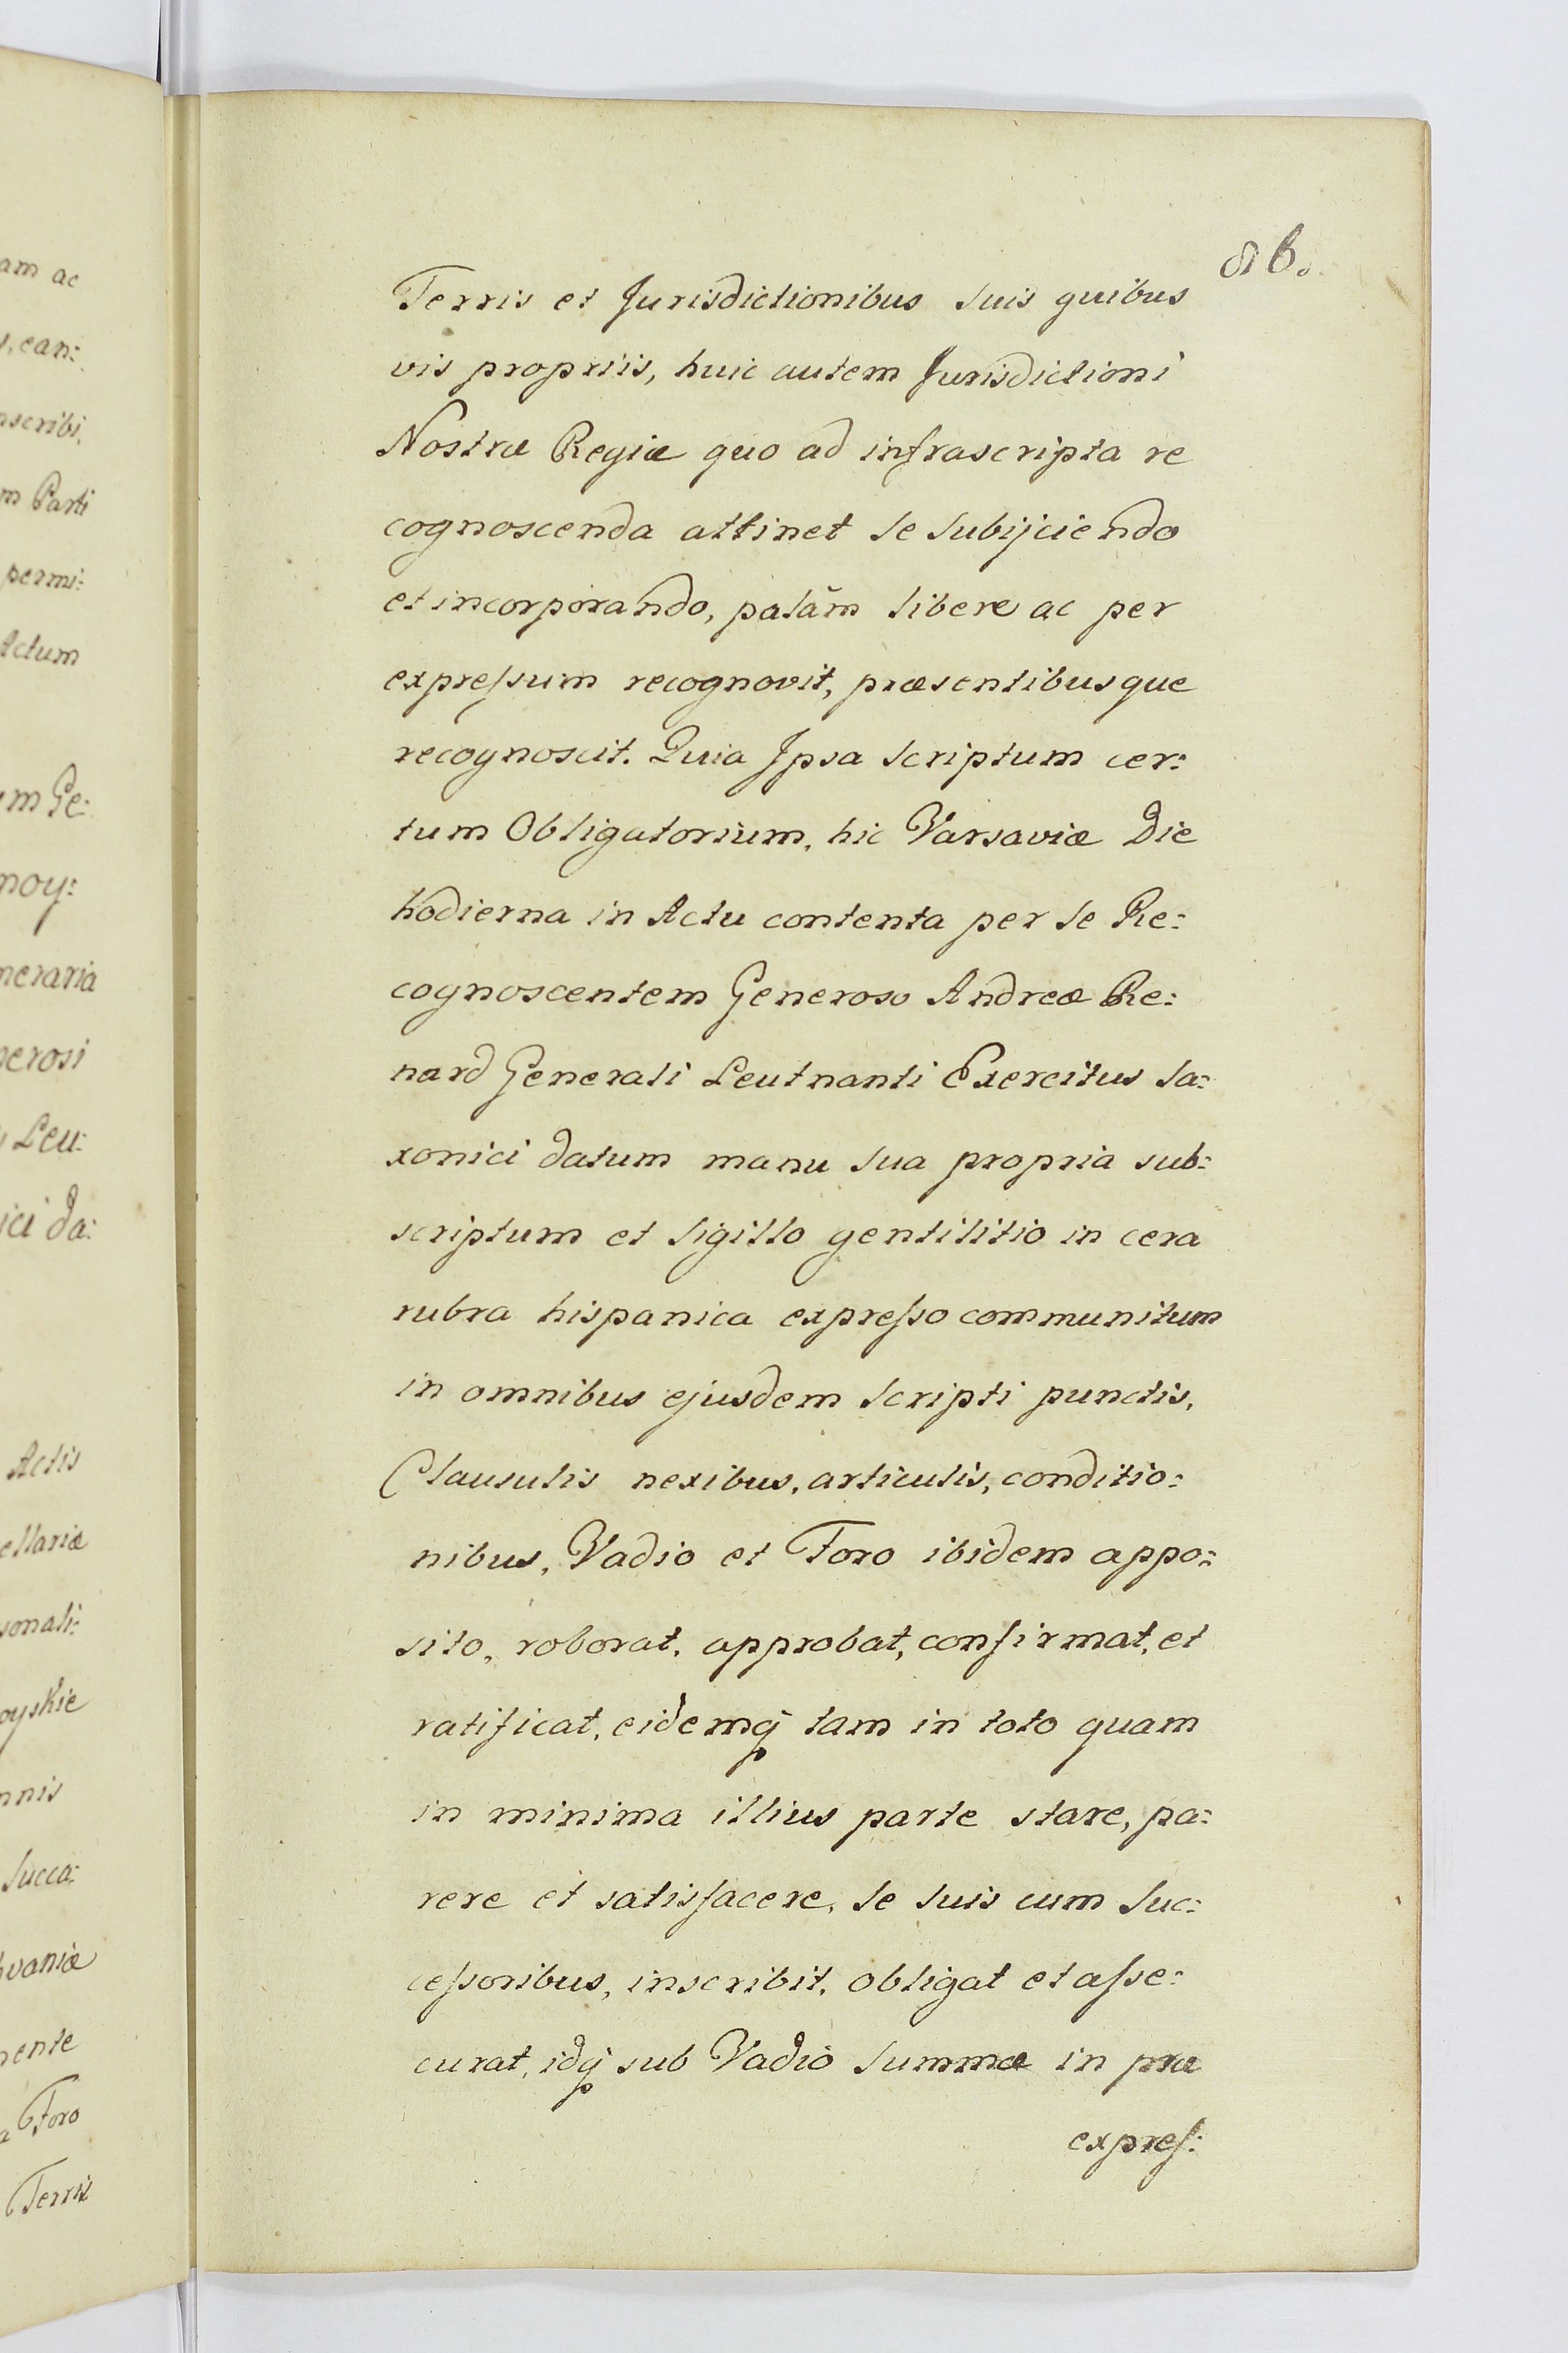 86.
Terris et Jurisdictionibus suis quibus
vis propriis, huic autem Jurisdictioni
Nostræ Regiæ quo ad infrascripta re
cognoscenda attinet se subijciendo
et incorporando, palãm libere ac per
expreſsum recognovit, præsentibusque
recognoscit. Quia Ipsa scriptum cer:
tum Obligatorium, hic Varsaviæ Die
hodierna in Actu contenta per se Re:
cognoscentem Generoso Andreæ Re:
nard Generali Leutnanti Exercitus Sa:
xonici datum manu sua propria sub:
scriptum et sigillo gentilitio in cera
rubra hispanica expreſso communitum
in omnibus ejusdem scripti punctis,
Clausulis nexibus, articulis, conditio:
nibus, Vadio et Foro ibidem appo:
sito, roborat, approbat, confirmat, et
ratificat, eidemq́ tam in toto quam
in minima illius parte stare, pa:
rere et satisfacere, se suis cum suc:
ceſsoribus, inscribit, obligat et aſse:
curat, idq́ sub Vadio summæ in præ
expreſ:
am ac
, ean:
nscribi,
m Parti
permi:
Actum
um Ge:
moy:
neraria
nerosi
Leu:
ici da:
Actis
ellariæ
sonali:
oyskie
nnis
Succa:
vaniæ
mente
Foro
Terris